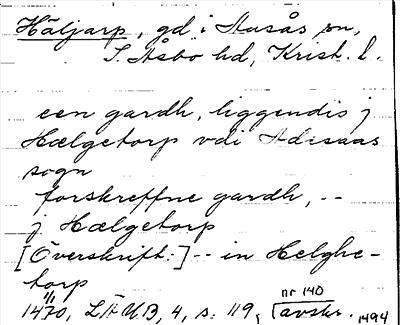 Häljarp, gd i Ausås sn,
S. Åsbo hd, Krist. l.
een gardh, liggendis j
Hælgetorp vdi Adisaas
sogn
forskreffne gardh, --
j Hælgetorp
[Överskrift:] -- in Helghe-
torp
1/1
1470, LÄUB, 4, s. 119, nr 140 avskr. 1494